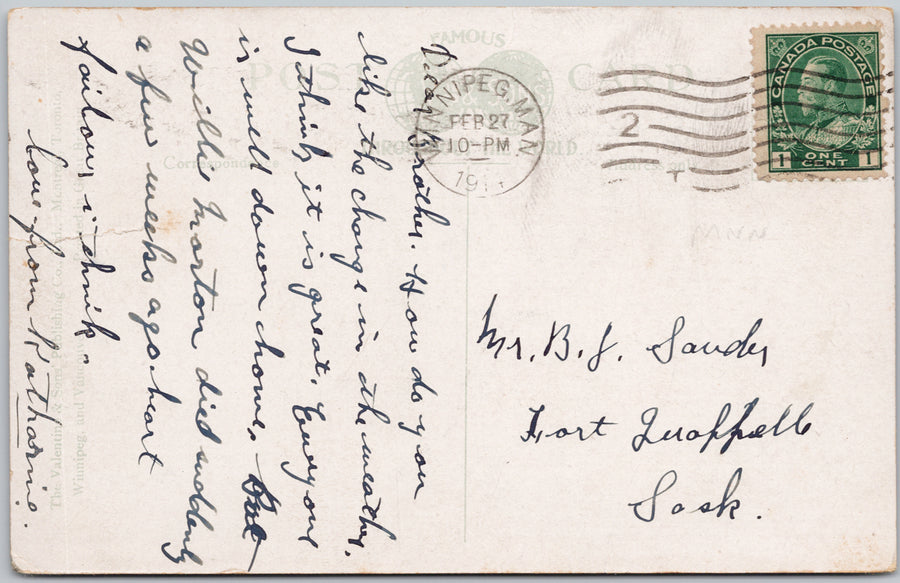 Dear Brother. How do you
like the change in the weather.
I think it is great. Every one
is well down home. But
Willie Norton died suddenly
a few weeks ago. heart
failour i think.
love from Katharine.
FAMOUS
POST CARD
THROUGHOUT THE WORLD
Correspondence
The Valentine & Sons Publishing Co., Ltd., Montreal, Toronto,
Winnipeg, and Vancouver
WINNIPEG, MAN
FEB 27
10-PM
2
CANADA POSTAGE
1 ONE CENT 1
MNN
Mr. B. J. Sander
Fort Quappelle
Sask.